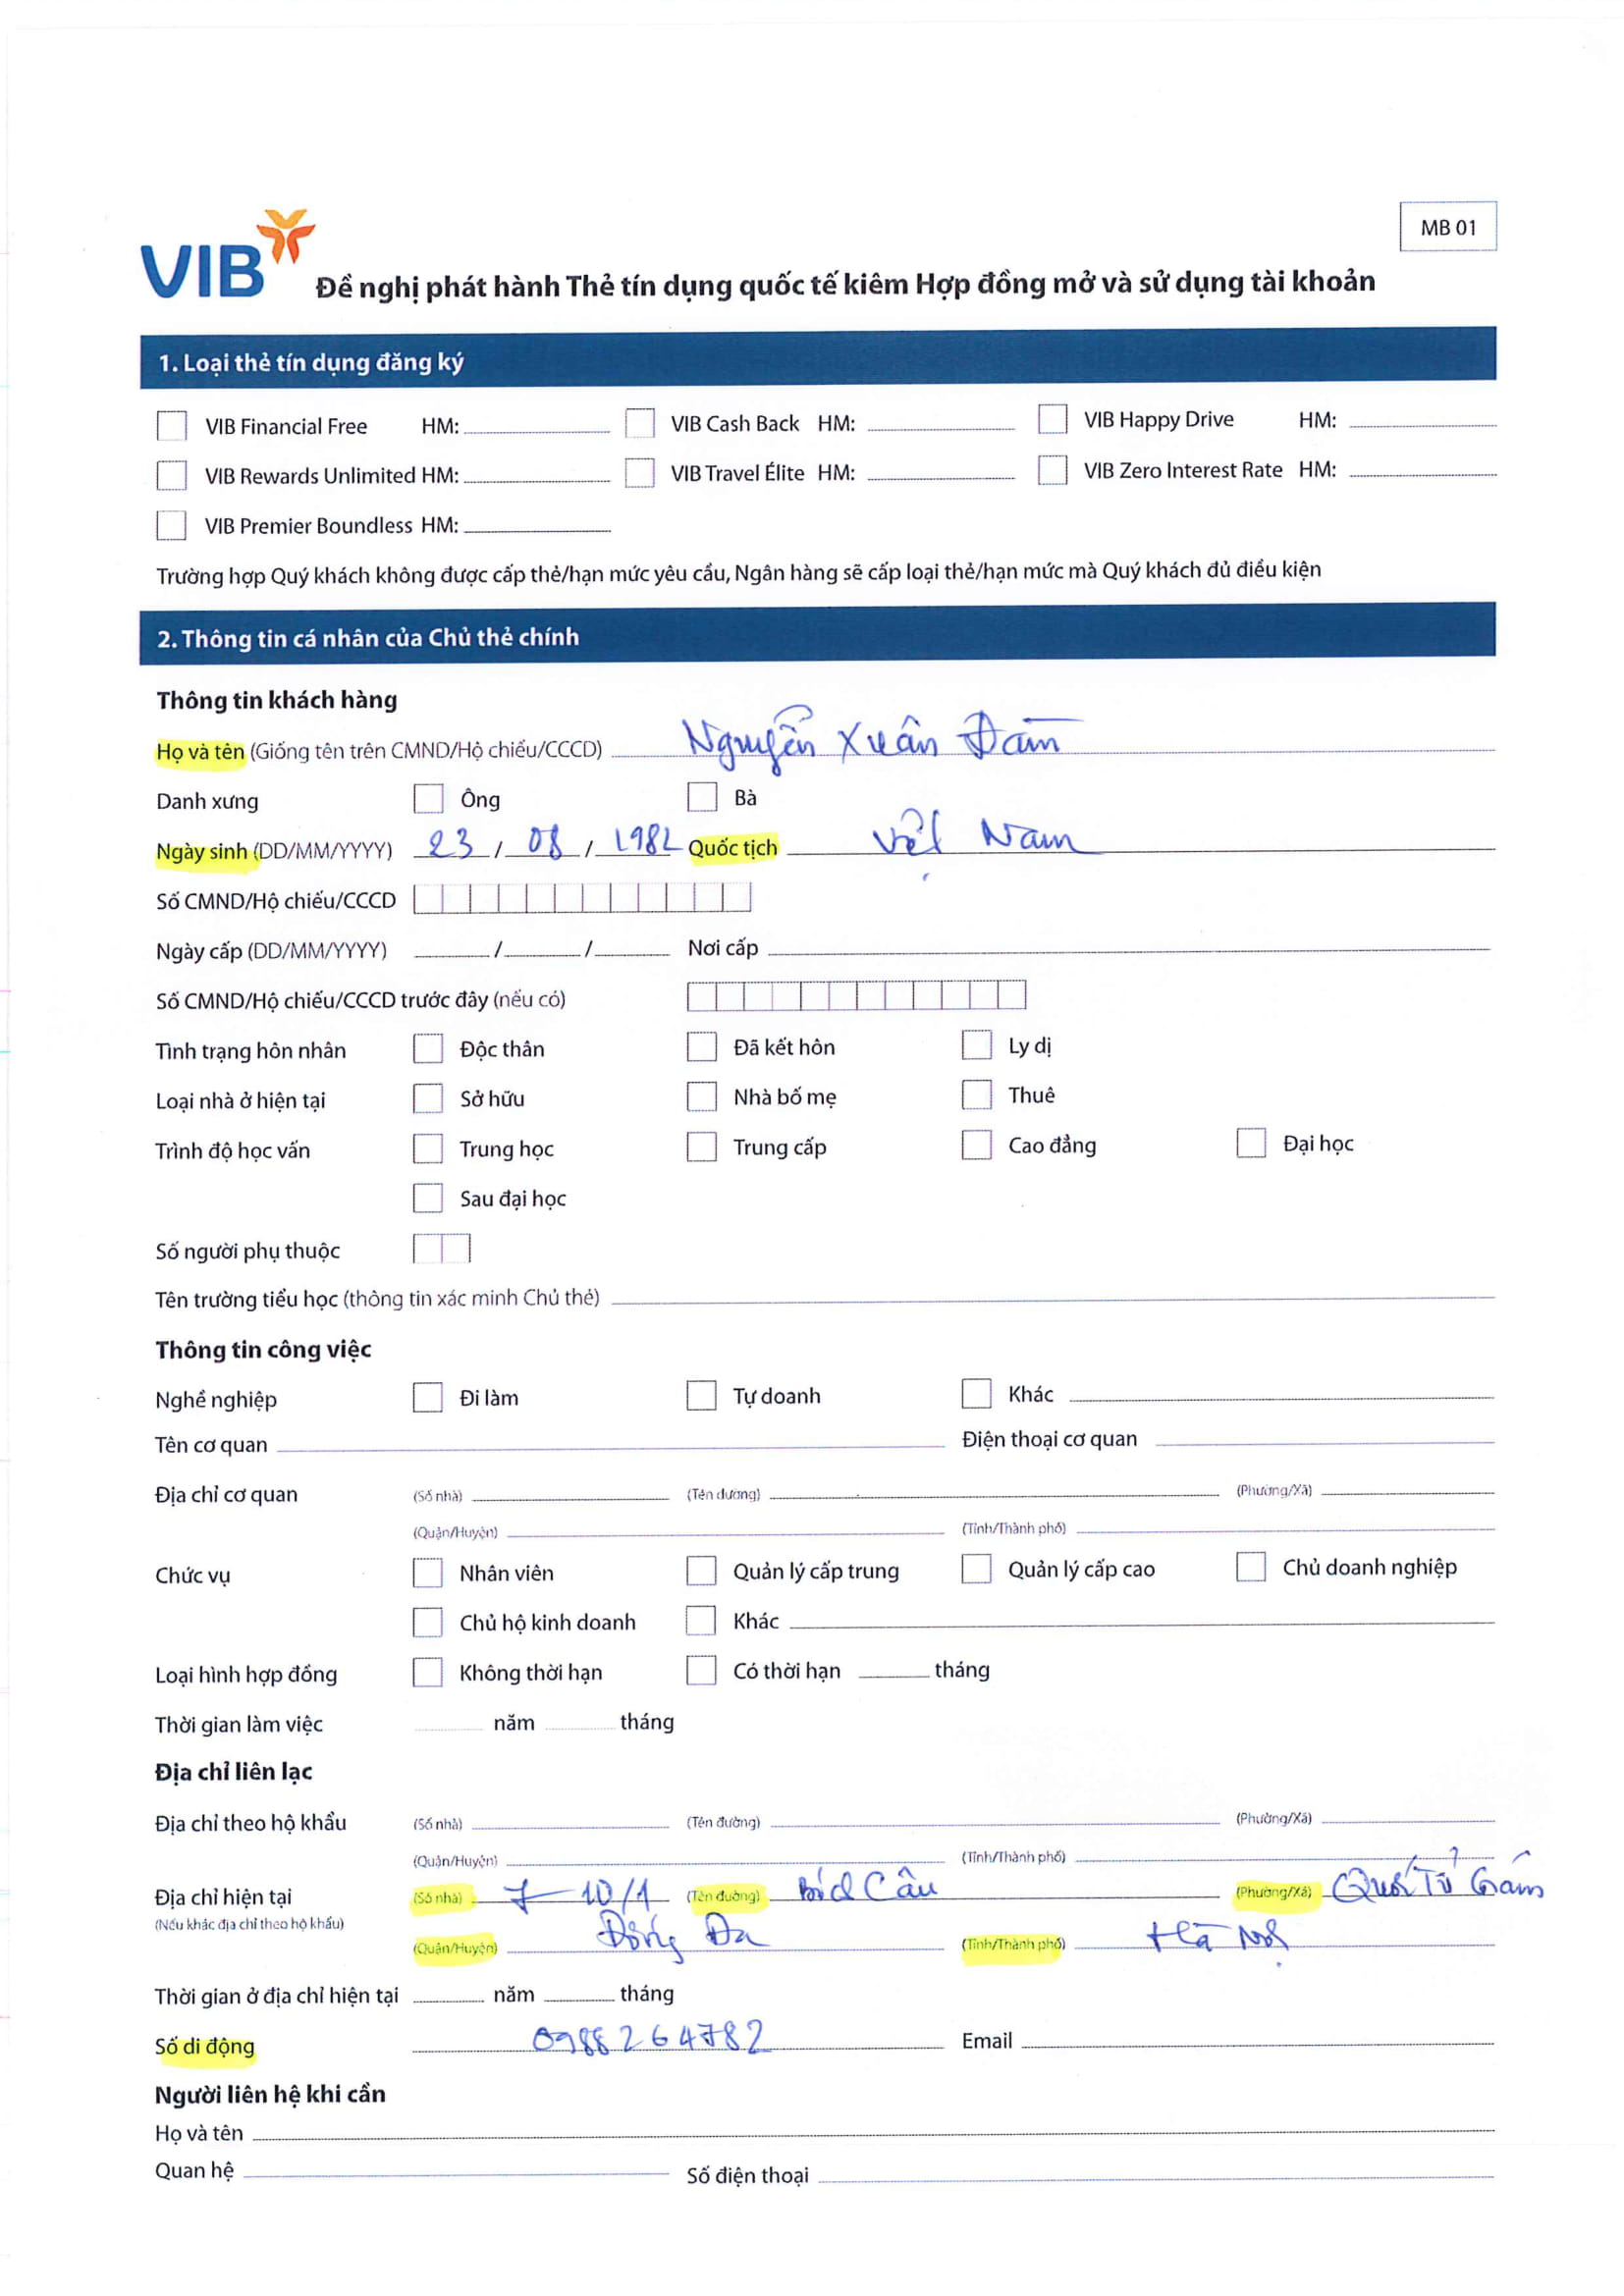 MB 01
VIB
Đề nghị phát hành Thẻ tín dụng quốc tế kiêm Hợp đồng mở và sử dụng tài khoản
1. Loại thẻ tín dụng đăng ký
VIB Financial Free HM: VIB Cash Back HM: VIB Happy Drive HM:
VIB Rewards Unlimited HM: VIB Travel Élite HM: VIB Zero Interest Rate HM:
VIB Premier Boundless HM:
Trường hợp Quý khách không được cấp thẻ/hạn mức yêu cầu, Ngân hàng sẽ cấp loại thẻ/hạn mức mà Quý khách đủ điều kiện
2. Thông tin cá nhân của Chủ thẻ chính
Thông tin khách hàng
Họ và tên (Giống tên trên CMND/Hộ chiếu/CCCD) Nguyễn Xuân Đàm
Danh xưng Ông Bà
Ngày sinh (DD/MM/YYYY) 23 / 08 / 1982 Quốc tịch Việt Nam
Số CMND/Hộ chiếu/CCCD
Ngày cấp (DD/MM/YYYY) / / Nơi cấp
Số CMND/Hộ chiếu/CCCD trước đây (nếu có)
Tình trạng hôn nhân Độc thân Đã kết hôn Ly dị
Loại nhà ở hiện tại Sở hữu Nhà bố mẹ Thuê
Trình độ học vấn Trung học Trung cấp Cao đẳng Đại học
Sau đại học
Số người phụ thuộc
Tên trường tiểu học (thông tin xác minh Chủ thẻ)
Thông tin công việc
Nghề nghiệp Đi làm Tự doanh Khác
Tên cơ quan Điện thoại cơ quan
Địa chỉ cơ quan (Số nhà) (Tên đường) (Phường/Xã)
(Quận/Huyện) (Tỉnh/Thành phố)
Chức vụ Nhân viên Quản lý cấp trung Quản lý cấp cao Chủ doanh nghiệp
Chủ hộ kinh doanh Khác
Loại hình hợp đồng Không thời hạn Có thời hạn tháng
Thời gian làm việc năm tháng
Địa chỉ liên lạc
Địa chỉ theo hộ khẩu (Số nhà) (Tên đường) (Phường/Xã)
(Quận/Huyện) (Tỉnh/Thành phố)
Địa chỉ hiện tại (Số nhà) 7-10/1 (Tên đường) Bích Câu (Phường/Xã) Quốc Tử Giám
(Nếu khác địa chỉ theo hộ khẩu)
(Quận/Huyện) Đống Đa (Tỉnh/Thành phố) Hà Nội
Thời gian ở địa chỉ hiện tại năm tháng
Số di động 0988264782 Email
Người liên hệ khi cần
Họ và tên
Quan hệ Số điện thoại